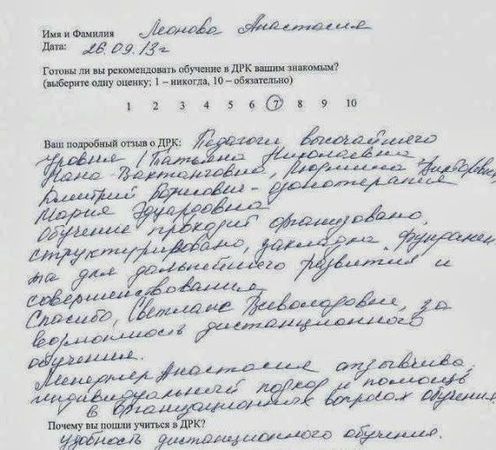 Имя и Фамилия Леонова Анастасия
Дата: 26.09.13г
Готовы ли вы рекомендовать обучение в ДРК вашим знакомым?
(выберите одну оценку; 1 – никогда, 10 – обязательно)
1 2 3 4 5 6 7 8 9 10
Ваш подробный отзыв о ДРК: Педагоги высочайшего
уровня! Татьяна Николаевна
Нана Вахтанговна, Людмила
Дмитрий - озонотерапия
Мария Эдуардовна
Обучение проходит организовано,
структурировано, закладка фундамен
та для дальнейшего развития и
совершенствования.
Спасибо, Светлане Всеволодовне, за
возможность дистанционного
обучения.
Менеджер Анастасия отзывчива,
индивидуальный подход и помощь
в организационных вопросах обучения
Почему вы пошли учиться в ДРК?
удобность дистанционного обучения.